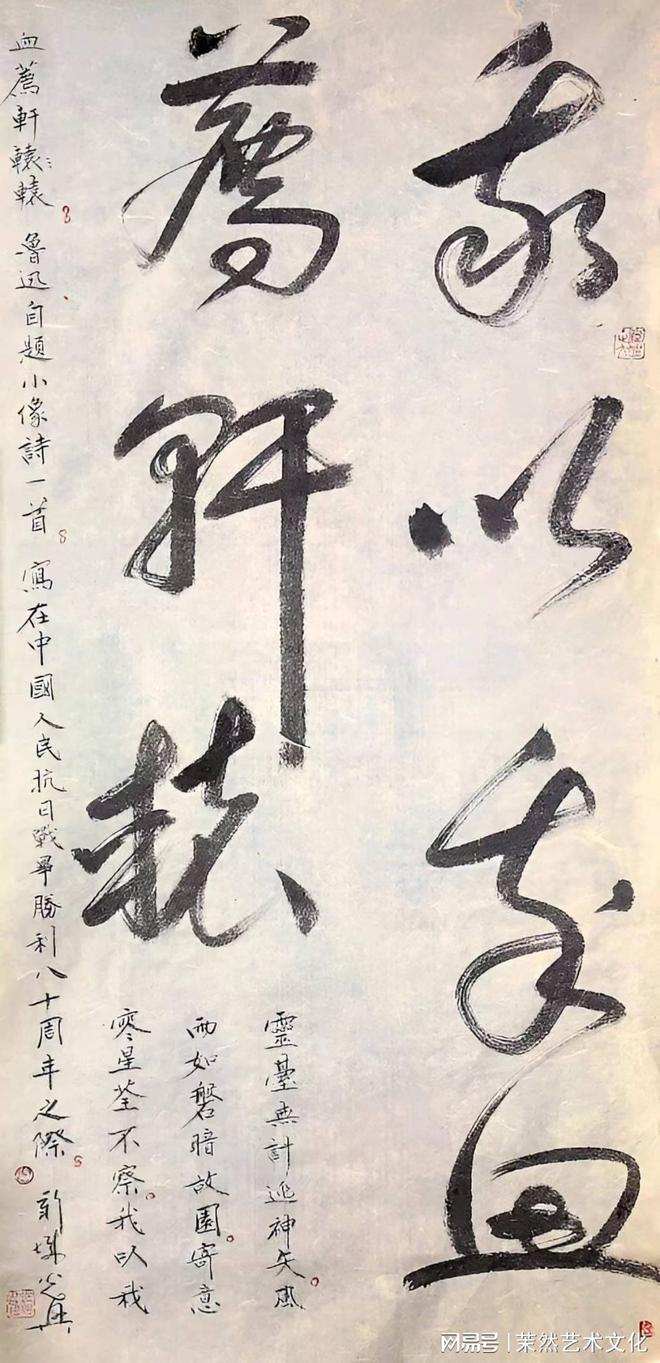 我以我血
薦軒轅
靈臺無計逃神矢風
雨如磐暗故園寄意
寒星荃不察我以我
血薦軒轅轅 魯迅自題小像詩一首 寫在中國人民抗日戰爭勝利八十周年之際
网易号 | 茉然艺术文化